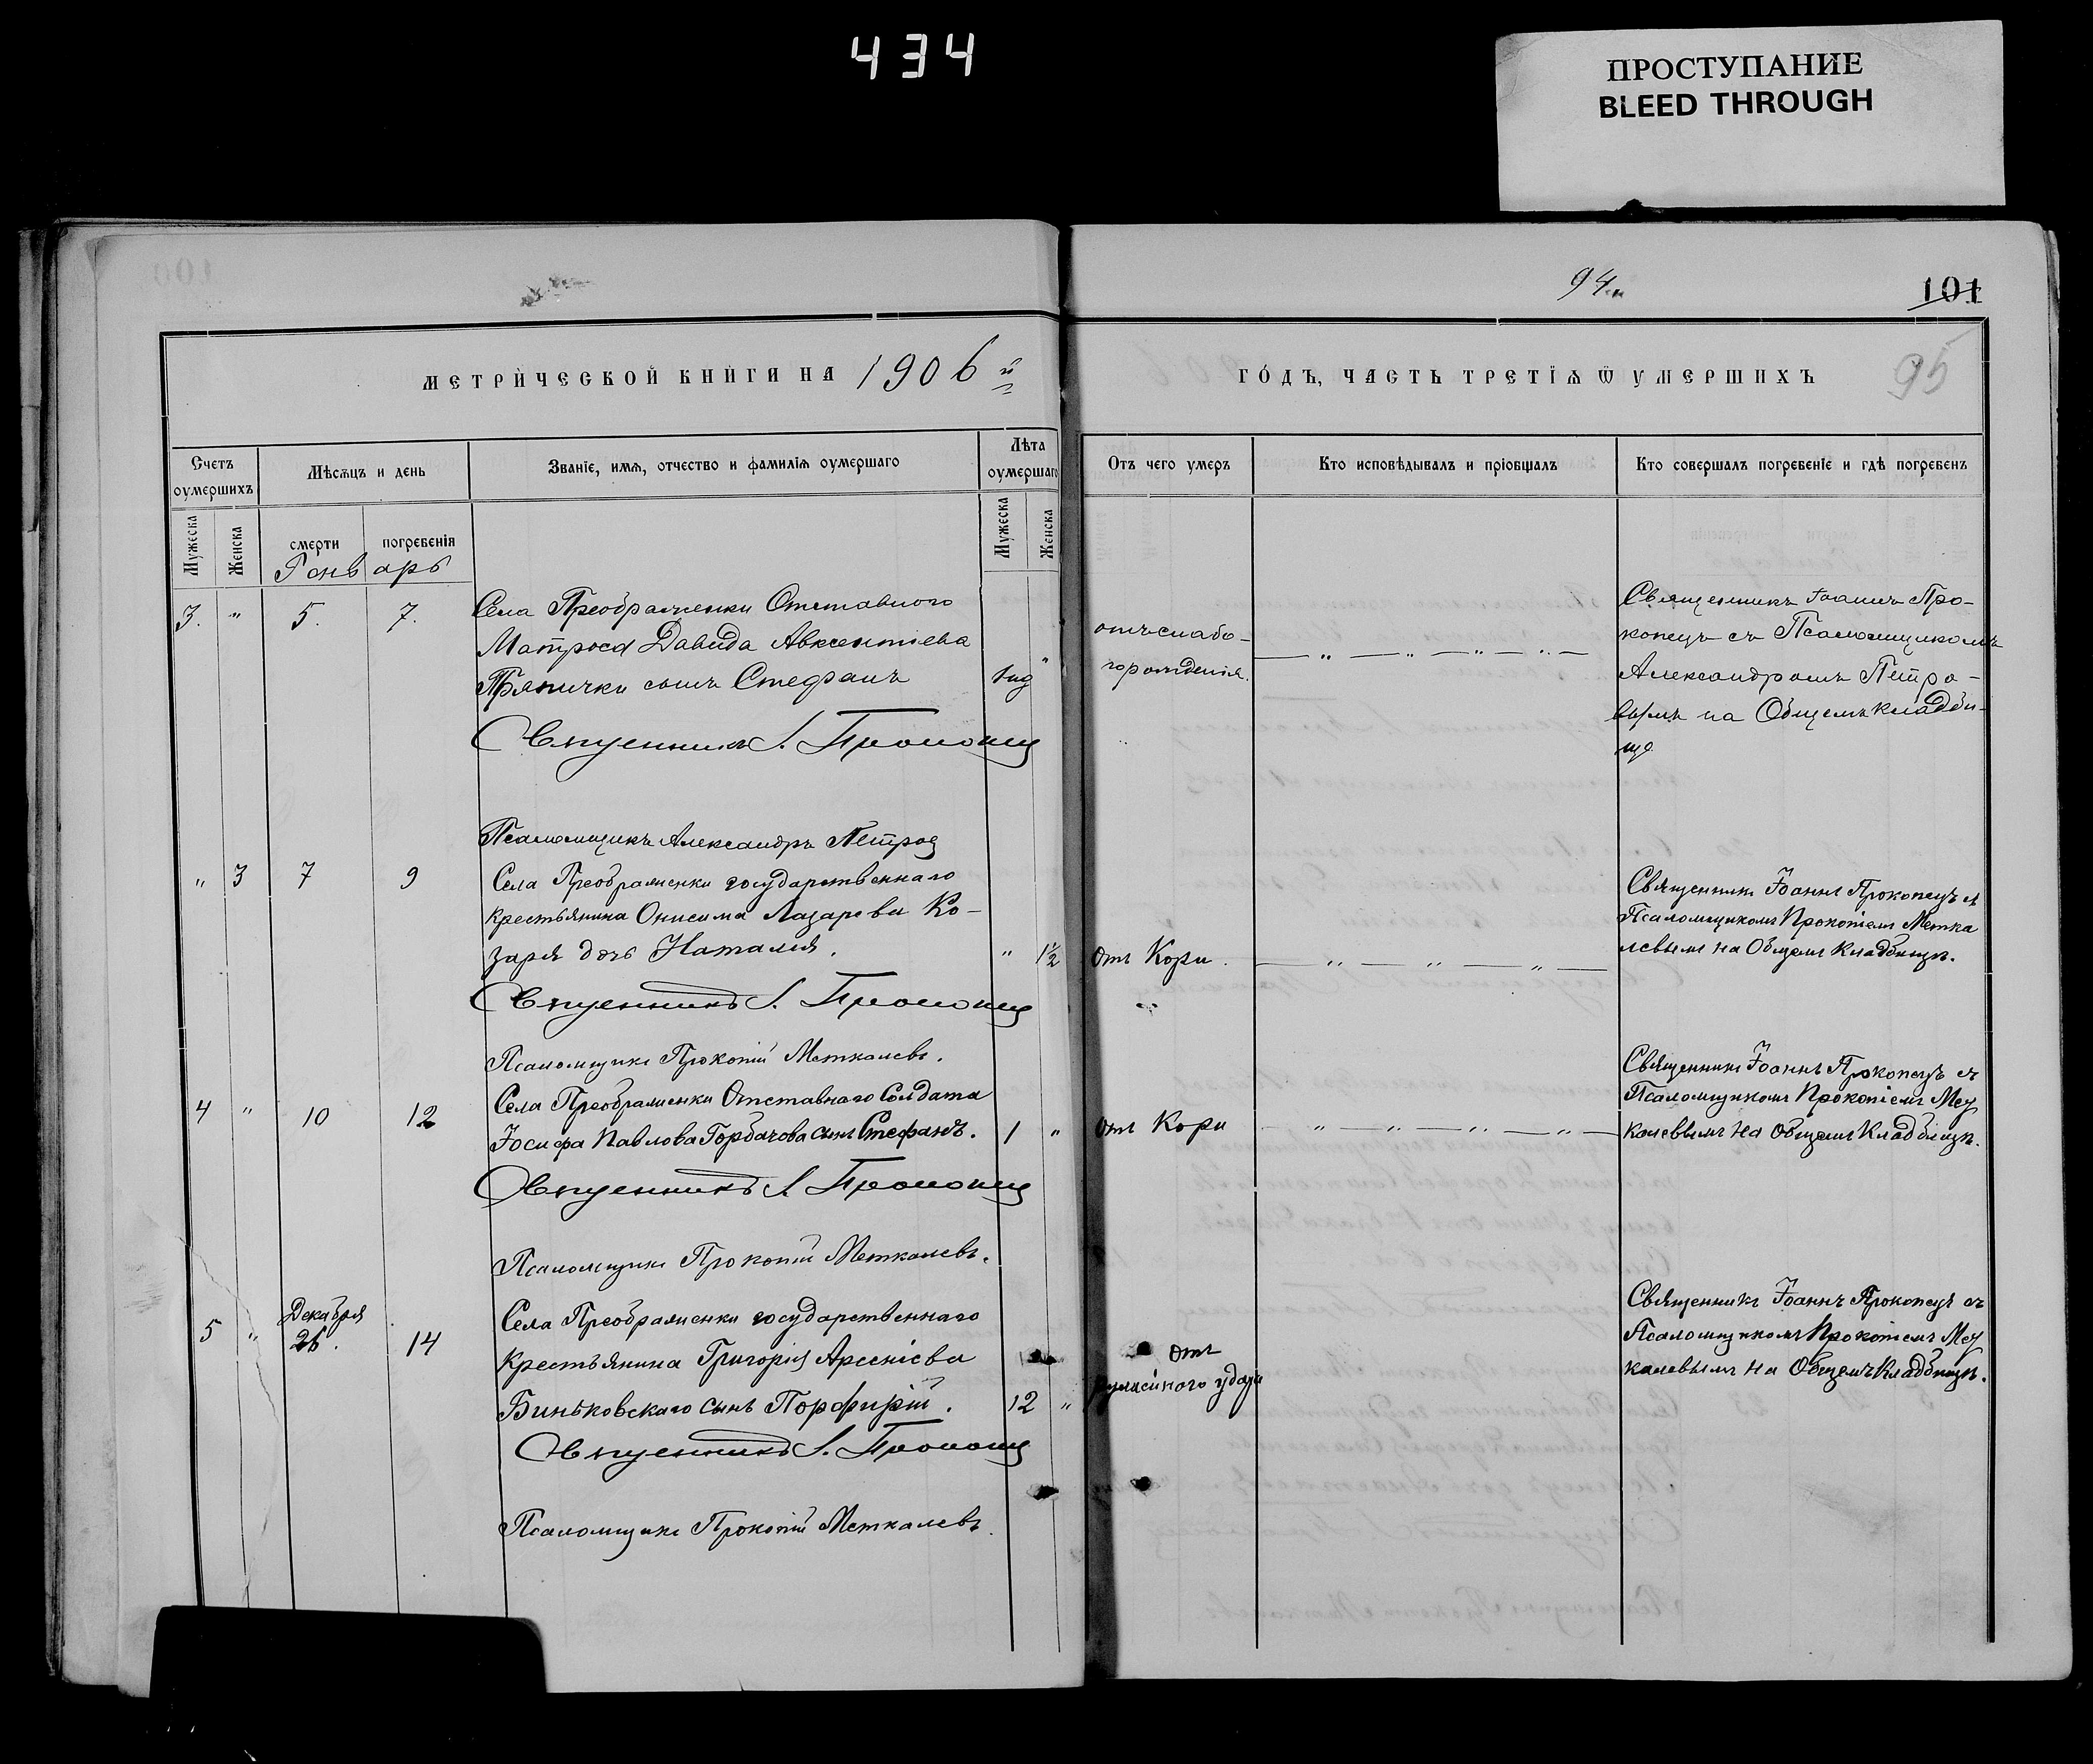 434
ПРОСТУПАНИЕ
BLEED THROUGH
94.
101
МЕТРИЧЕСКОЙ КНИГИ НА 1906 й
ГОДЪ, ЧАСТЬ ТРЕТІѦ Ѿ УМЕРШИХЪ
95
Счетъ оумершихъ
Мѣсѧцъ и день
Званіе, имѧ, отчество и фамиліѧ оумершаго
Лѣта оумершаго
Отъ чего умеръ
Кто исповѣдывалъ и пріобщалъ
Кто совершалъ погребеніе и гдѣ погребенъ
Мужеска
Женска
смерти
погребенія
Мужеска
Женска
Январь
3. " 5. 7.
Села Преображенки Отставного
Матроса Давида Авксентіева
Прянички сынъ Стефанъ
Священникъ І. Прокопец
отъ слабо-
горожденія.
Священникъ Іоаннъ Про-
копецъ съ Псаломщикомъ
Александромъ Петро-
вымъ на Общемъ кладби-
ще
Псаломщикъ Александръ Петров
" 3 7 9
Села Преображенки государственнаго
крестьянина Онисима Лазарева Ко-
заря дочь Наталія. " 1½
отъ Кори.
Священникъ Іоаннъ Прокопецъ съ
Псаломщикомъ Прокопіемъ Метка
левымъ на Общемъ Кладбищѣ.
Священникъ І. Прокопец
Псаломщикъ Прокопій Меткалевъ.
4 " 10 12
Села Преображенки Отставнаго Солдата
Іосифа Павлова Горбачова сынъ Стефанъ. 1 "
отъ Кори
Священникъ Іоаннъ Прокопецъ съ
Псаломщикомъ Прокопіемъ Мет
калевымъ на Общемъ Кладбищѣ.
Священникъ І. Прокопец
Псаломщикъ Прокопій Меткалевъ.
5 " Декабря
26. 14
Села Преображенки государственнаго
крестьянина Григорія Арсеніева
Биньковскаго сынъ Порфирій. 12 "
отъ
удара
Священникъ Іоаннъ Прокопецъ съ
Псаломщикомъ Прокопіемъ Мет
калевымъ на Общемъ Кладбищѣ.
Священникъ І. Прокопец
Псаломщикъ Прокопій Меткалевъ.